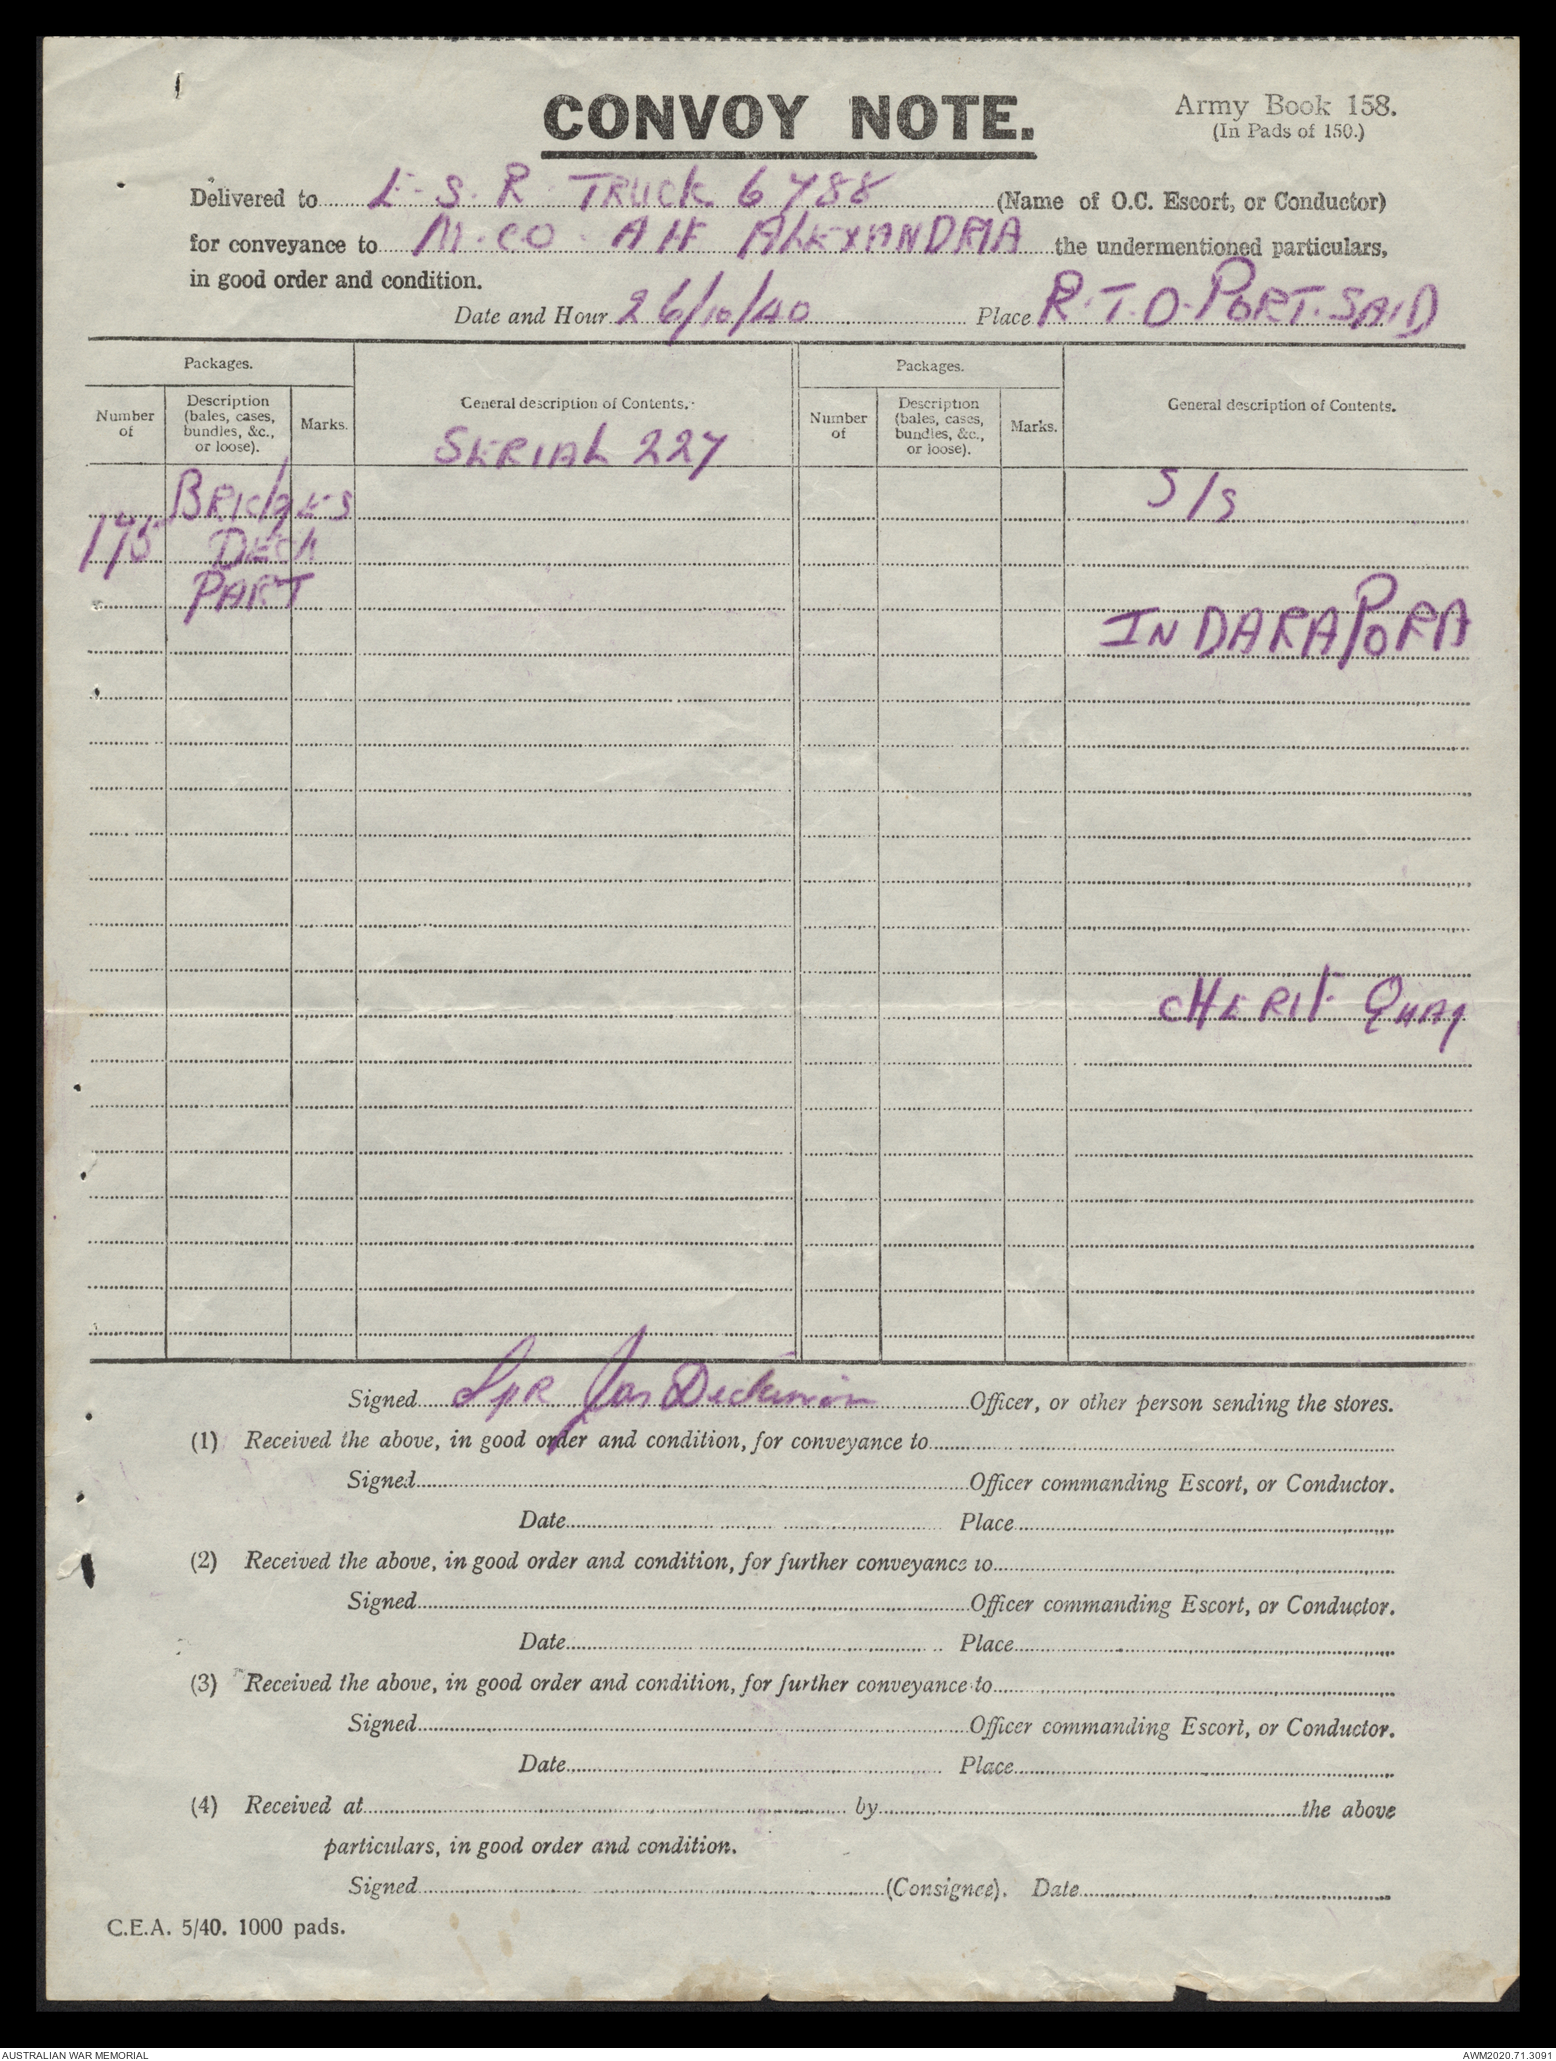 CONVOY NOTE.
Army Book 158.
(In Pads of 150.)
Delivered to E.S.R. TRUCK 6788 (Name of O.C. Escort, or Conductor)
for conveyance to M.CO. AIF ALEXANDRIA the undermentioned particulars,
in good order and condition.
Date and Hour 26/10/40 Place R.T.O. PORT. SAID
Packages.
Number of
Description (bales, cases, bundles, &c., or loose).
Marks.
General description of Contents.
SERIAL 227
Packages.
Number of
Description (bales, cases, bundles, &c., or loose).
Marks.
General description of Contents.
BRIDGES
175 DECK
PART
S/S
INDARAPORA
CHERIF QUAY
Signed Spr Jas Dickinson Officer, or other person sending the stores.
(1) Received the above, in good order and condition, for conveyance to
Signed Officer commanding Escort, or Conductor.
Date Place
(2) Received the above, in good order and condition, for further conveyance to
Signed Officer commanding Escort, or Conductor.
Date Place
(3) Received the above, in good order and condition, for further conveyance to
Signed Officer commanding Escort, or Conductor.
Date Place
(4) Received at by the above
particulars, in good order and condition.
Signed (Consignee). Date
C.E.A. 5/40. 1000 pads.
AUSTRALIAN WAR MEMORIAL
AWM2020.71.3091